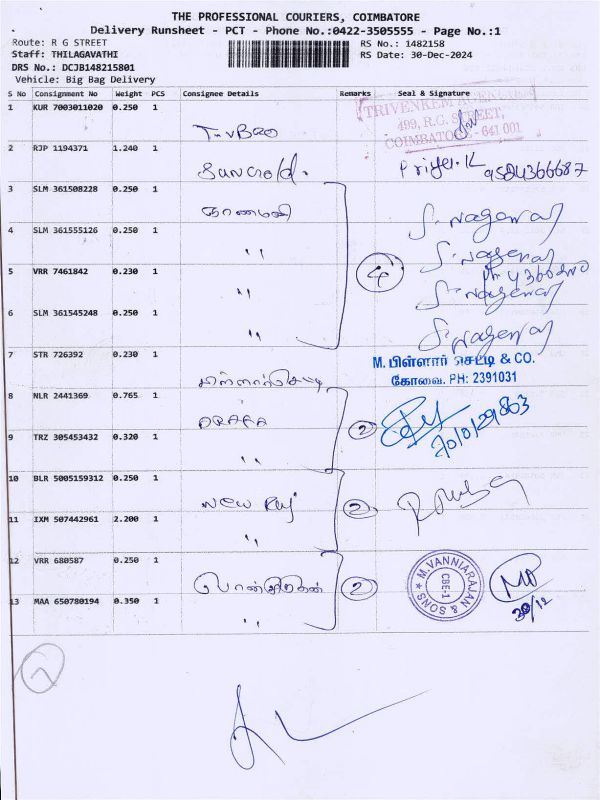 THE PROFESSIONAL COURIERS, COIMBATORE
Delivery Runsheet - PCT - Phone No.:0422-3505555 - Page No.:1
Route: R G STREET
RS No.: 1482158
Staff: THILAGAVATHI
RS Date: 30-Dec-2024
DRS No.: DCJB148215801
Vehicle: Big Bag Delivery
S No Consignment No Weight PCS Consignee Details Remarks Seal & Signature
1 KUR 7003011020 0.250 1
TRIVENKEM AGENCIES
499, R.G. STREET,
COIMBATORE - 641 001
2 RJP 1194371 1.240 1 Suncold. Priya.K 9584366687
3 SLM 361508228 0.250 1 ஞானமணி S. Nagaraj
4 SLM 361555126 0.250 1 " S. Nagaraj
5 VRR 7461842 0.230 1 " 4 S. Nagaraj
6 SLM 361545248 0.250 1 " S. Nagaraj
7 STR 726392 0.230 1 பிள்ளார்செட்டி
M. பிள்ளார் செட்டி & CO.
கோவை. PH: 2391031
8 NLR 2441369 0.765 1
9 TRZ 305453432 0.320 1 " 2
10 BLR 5005159312 0.250 1 New Raj 2
11 IXM 507442961 2.200 1 "
12 VRR 680587 0.250 1 2
M.VANNIARAJAN & SONS ★ CBE-1
30/12
13 MAA 650780194 0.350 1 "
7